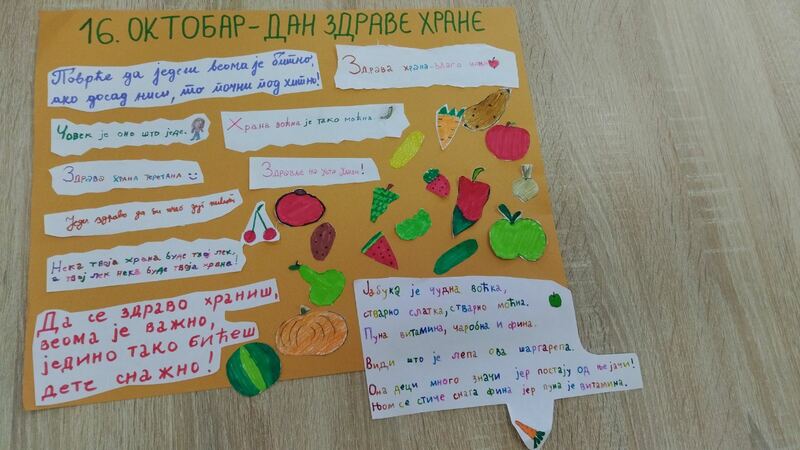 16. ОКТОБАР - ДАН ЗДРАВЕ ХРАНЕ
Поврће да једеш веома је битно,
ако досад ниси, то почни под хитно!
Здрава храна - благо
Човек је оно што једе.
Храна воћна је тако моћна
Здрава храна теретана
Здравље на уста улази!
Једи здраво да би
Нека твоја храна буде твој лек,
а твој лек нека буде твоја храна!
Да се здраво храниш,
веома је важно,
једино тако бићеш
дете снажно!
Јабука је чудна воћка,
стварно слатка, стварно моћна.
Пуна витамина, чаробна и фина.
Види што је лепа ова шаргарепа.
Она деци много значи јер постају од ње јачи!
Њом се стиче снага фина јер пуна је витамина.